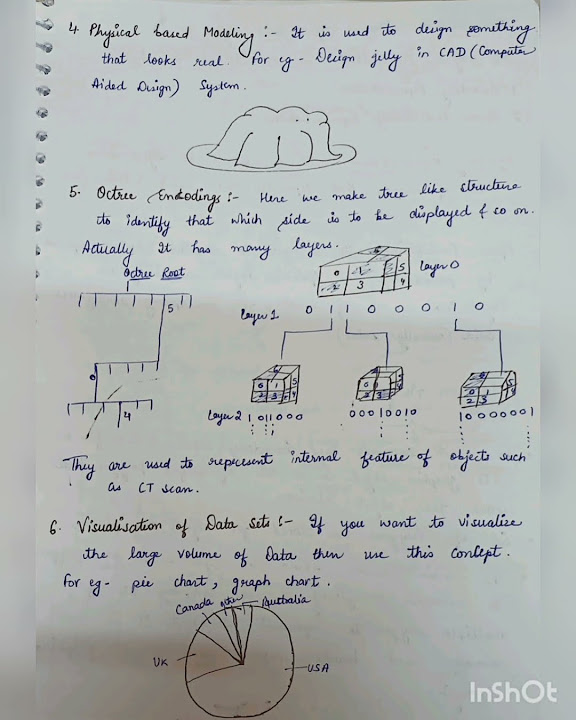 4. Physical based Modeling :- It is used to design something
that looks real. For eg - Design jelly in CAD (Computer
Aided Design) System.
5. Octree Encodings :- Here we make tree like structure
to identify that which side is to be displayed & so on.
Actually It has many layers.
Octree Root
5
0
4
6
0 1 5
2 3 4
Layer 0
Layer 1 0 1 1 0 0 0 1 0
6
0 1 5
2 3 4
0 1
2 3
6
0 1 5
2 3 4
Layer 2 1 0 1 1 0 0 0
0 0 0 1 0 0 1 0
1 0 0 0 0 0 1
They are used to represent internal feature of objects such
as CT scan.
6. Visualisation of Data Sets :- If you want to visualize
the large volume of Data then use this concept.
For eg - pie chart, graph chart.
Canada other Australia
UK
USA
InShOt